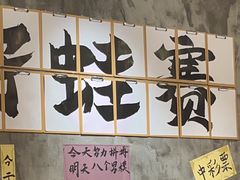 蛙赛
今天努力拼搏
明天八个男模
中彩票
今